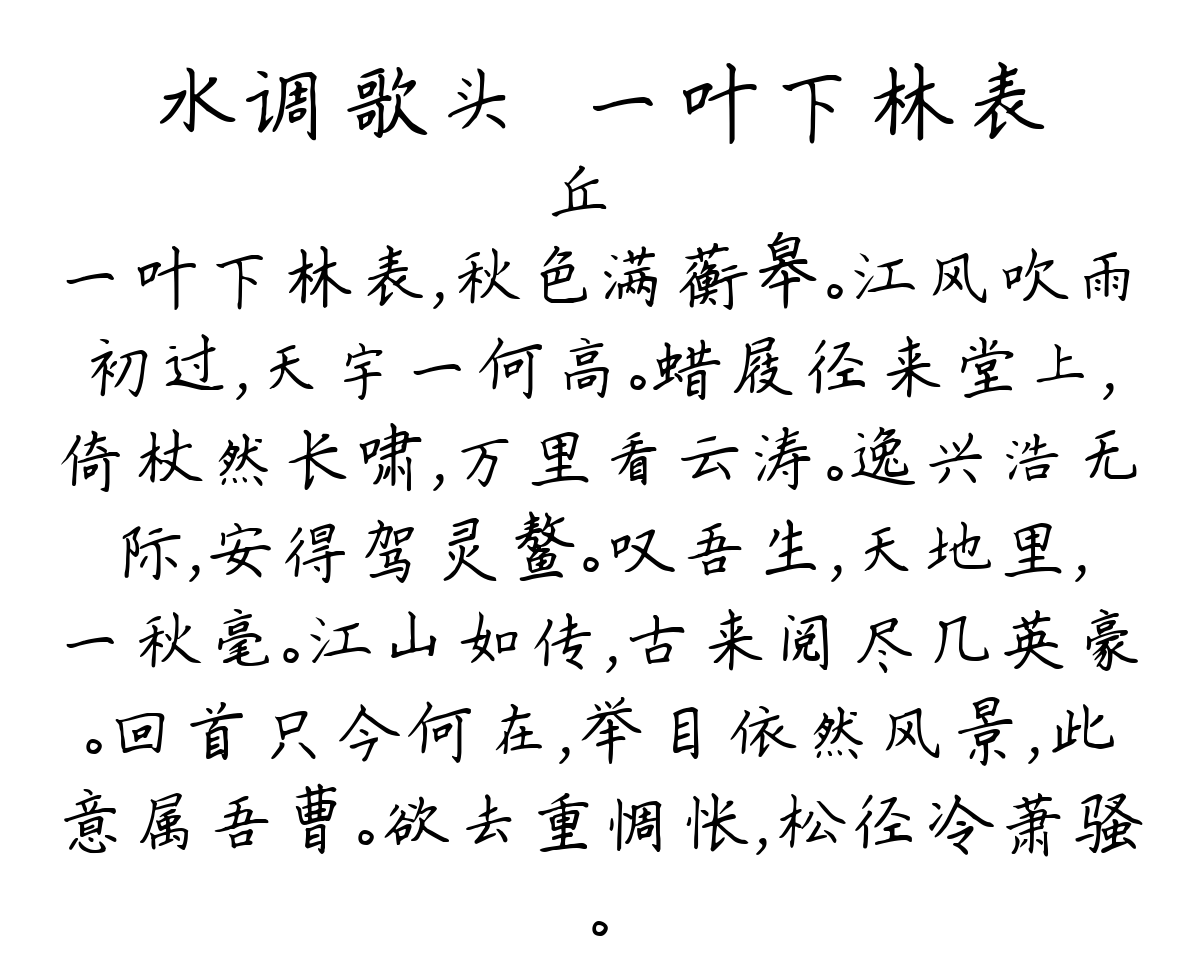 水调歌头 一叶下林表
丘
一叶下林表,秋色满蘅皋。江风吹雨
初过,天宇一何高。蜡屐径来堂上,
倚杖然长啸,万里看云涛。逸兴浩无
际,安得驾灵鳌。叹吾生,天地里,
一秋毫。江山如传,古来阅尽几英豪
。回首只今何在,举目依然风景,此
意属吾曹。欲去重惆怅,松径冷萧骚
。